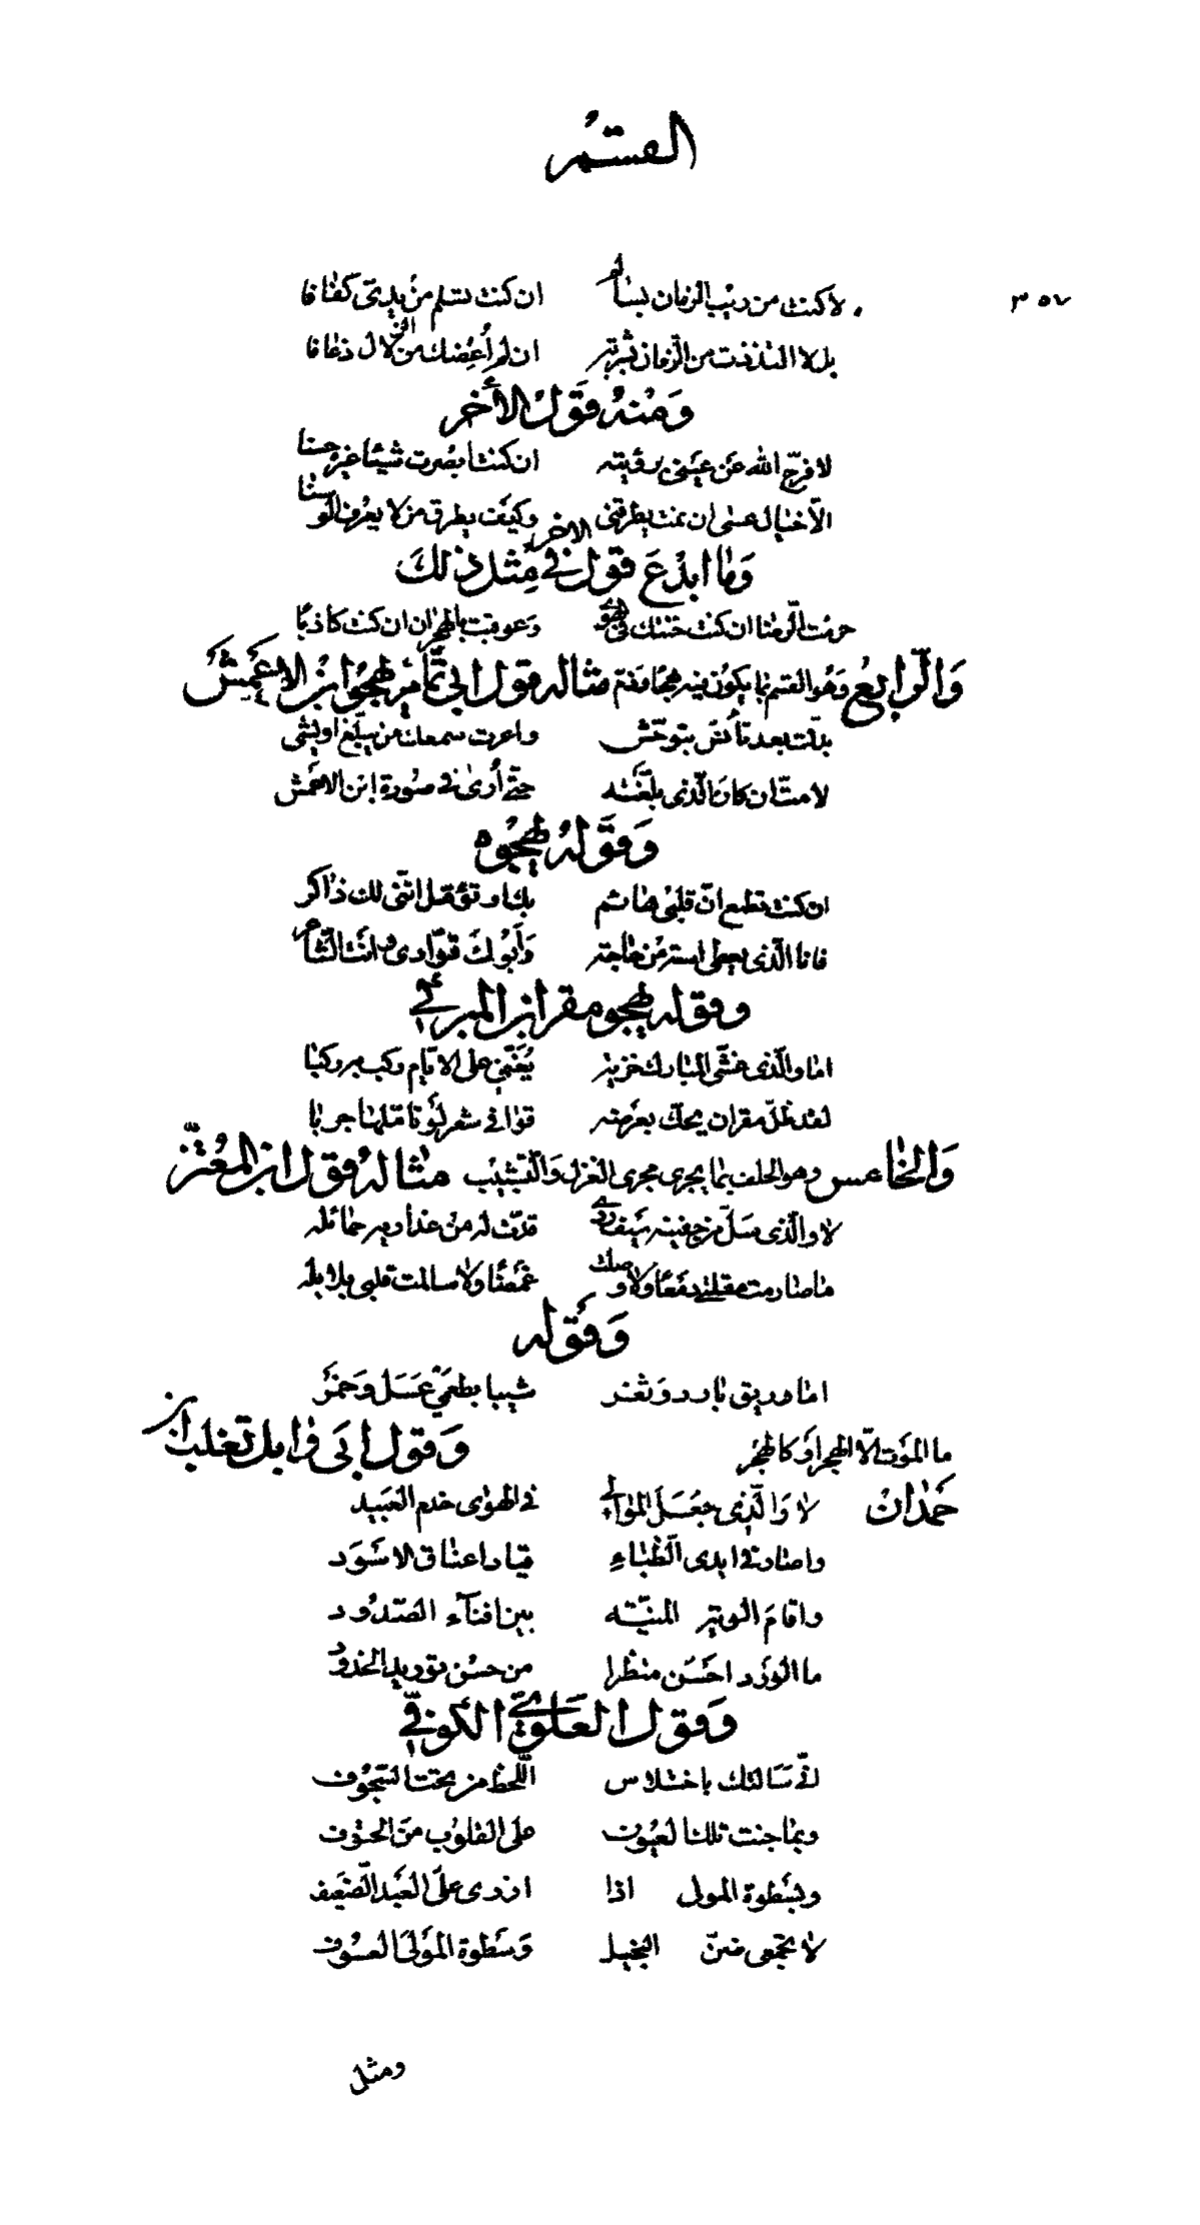 القسم
٣٥٧
لا كنت من ريب الزمان بسالم ان كنت تسلم من يدي كفافا
بل لا التذذت من الزمان بشربة ان لم أعضك من الزلال ذعافا
ومنه قول الأخر
لا فرج الله عن عيني برؤيته ان كنت ابصرت شيئا غيره حسنا
الا خيال عسى ان نمت يطرقني وكيف يطرق من لا يعرف الوسنا
وما ابدع قول الاخر في مثل ذلك
حرمت الرضا ان كنت خنتك في الهوى وعوقبت بالهجران ان كنت كاذبا
والرابع وهو القسم بما يكون فيه هجا مقدم مثاله قول ابي تمام يهجو ابن الاعمش
بدلت بعد تأنس بتوحش واعرت سمعك من يبلغ او يشي
لا مت ان كان الذي بلغته حتى أرى في صورة ابن الاعمش
وقوله يهجوه
ان كنت تطمع ان قلبي هائم بك او تؤمل انني لك ذاكر
فانا الذي يعطي استه من حاجة وأبوك قوادي وانت الشاعر
وقوله يهجو مقران المبرئي
اما والذي غشى المبارك خزية يغني على الايام ركب بها ركبا
لقد ظل مقران يحك بعرضه قوافي شعر لو تأملها جربا
والخامس وهو الحلف بما يجري مجرى الغزل والتشبيب مثاله قول ابن المعتز
لا والذي سل من جفنيه سيف ردى قدت له من عذاريه حمائله
ما صارمت مقلتي دمعا ولا وصلت غمضا ولا سالمت قلبي بلابله
وقوله
اما وريق بارد وثغر شيبا بطعمي عسل وخمر
ما الموت الا الهجر او كالهجر وقول ابي وايل تغلب ابن
حمدان لا والذي جعل الموالي في الهوى خدم العبيد
واصار في ايدي الظباء قياد اعناق الاسود
واقام الوية المنية بين افناء الصدود
ما الورد احسن منظرا من حسن توريد الخدود
وقول العلوي الكوفي
اني سالتك باختلاس اللحظ من تحت السجوف
وبما جنت تلك العيون على القلوب من الحتوف
وبسطوة المولى اذا ازرى على العبد الضعيف
لا تجمعي ضن البخيل وسطوة المولى العسوف
ومثل